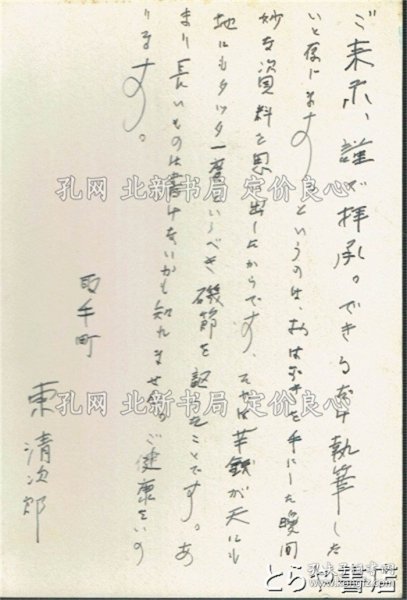 ご来示、謹で拝承。できるだけ執筆した
いと存じます。というのは、おはがきを手にした瞬間
妙な資料を思い出したからです、それは華銭が天にも
地にもタッタ一度というべき磯節を謳たことです。あ
まり長いものは書けないかも知れません。ご健康をいの
ります。
取手町
東清次郎
孔网 北新书局 定价良心
孔网 北新书局 定价良心
孔网 北新书局 定价良心
とらや書店